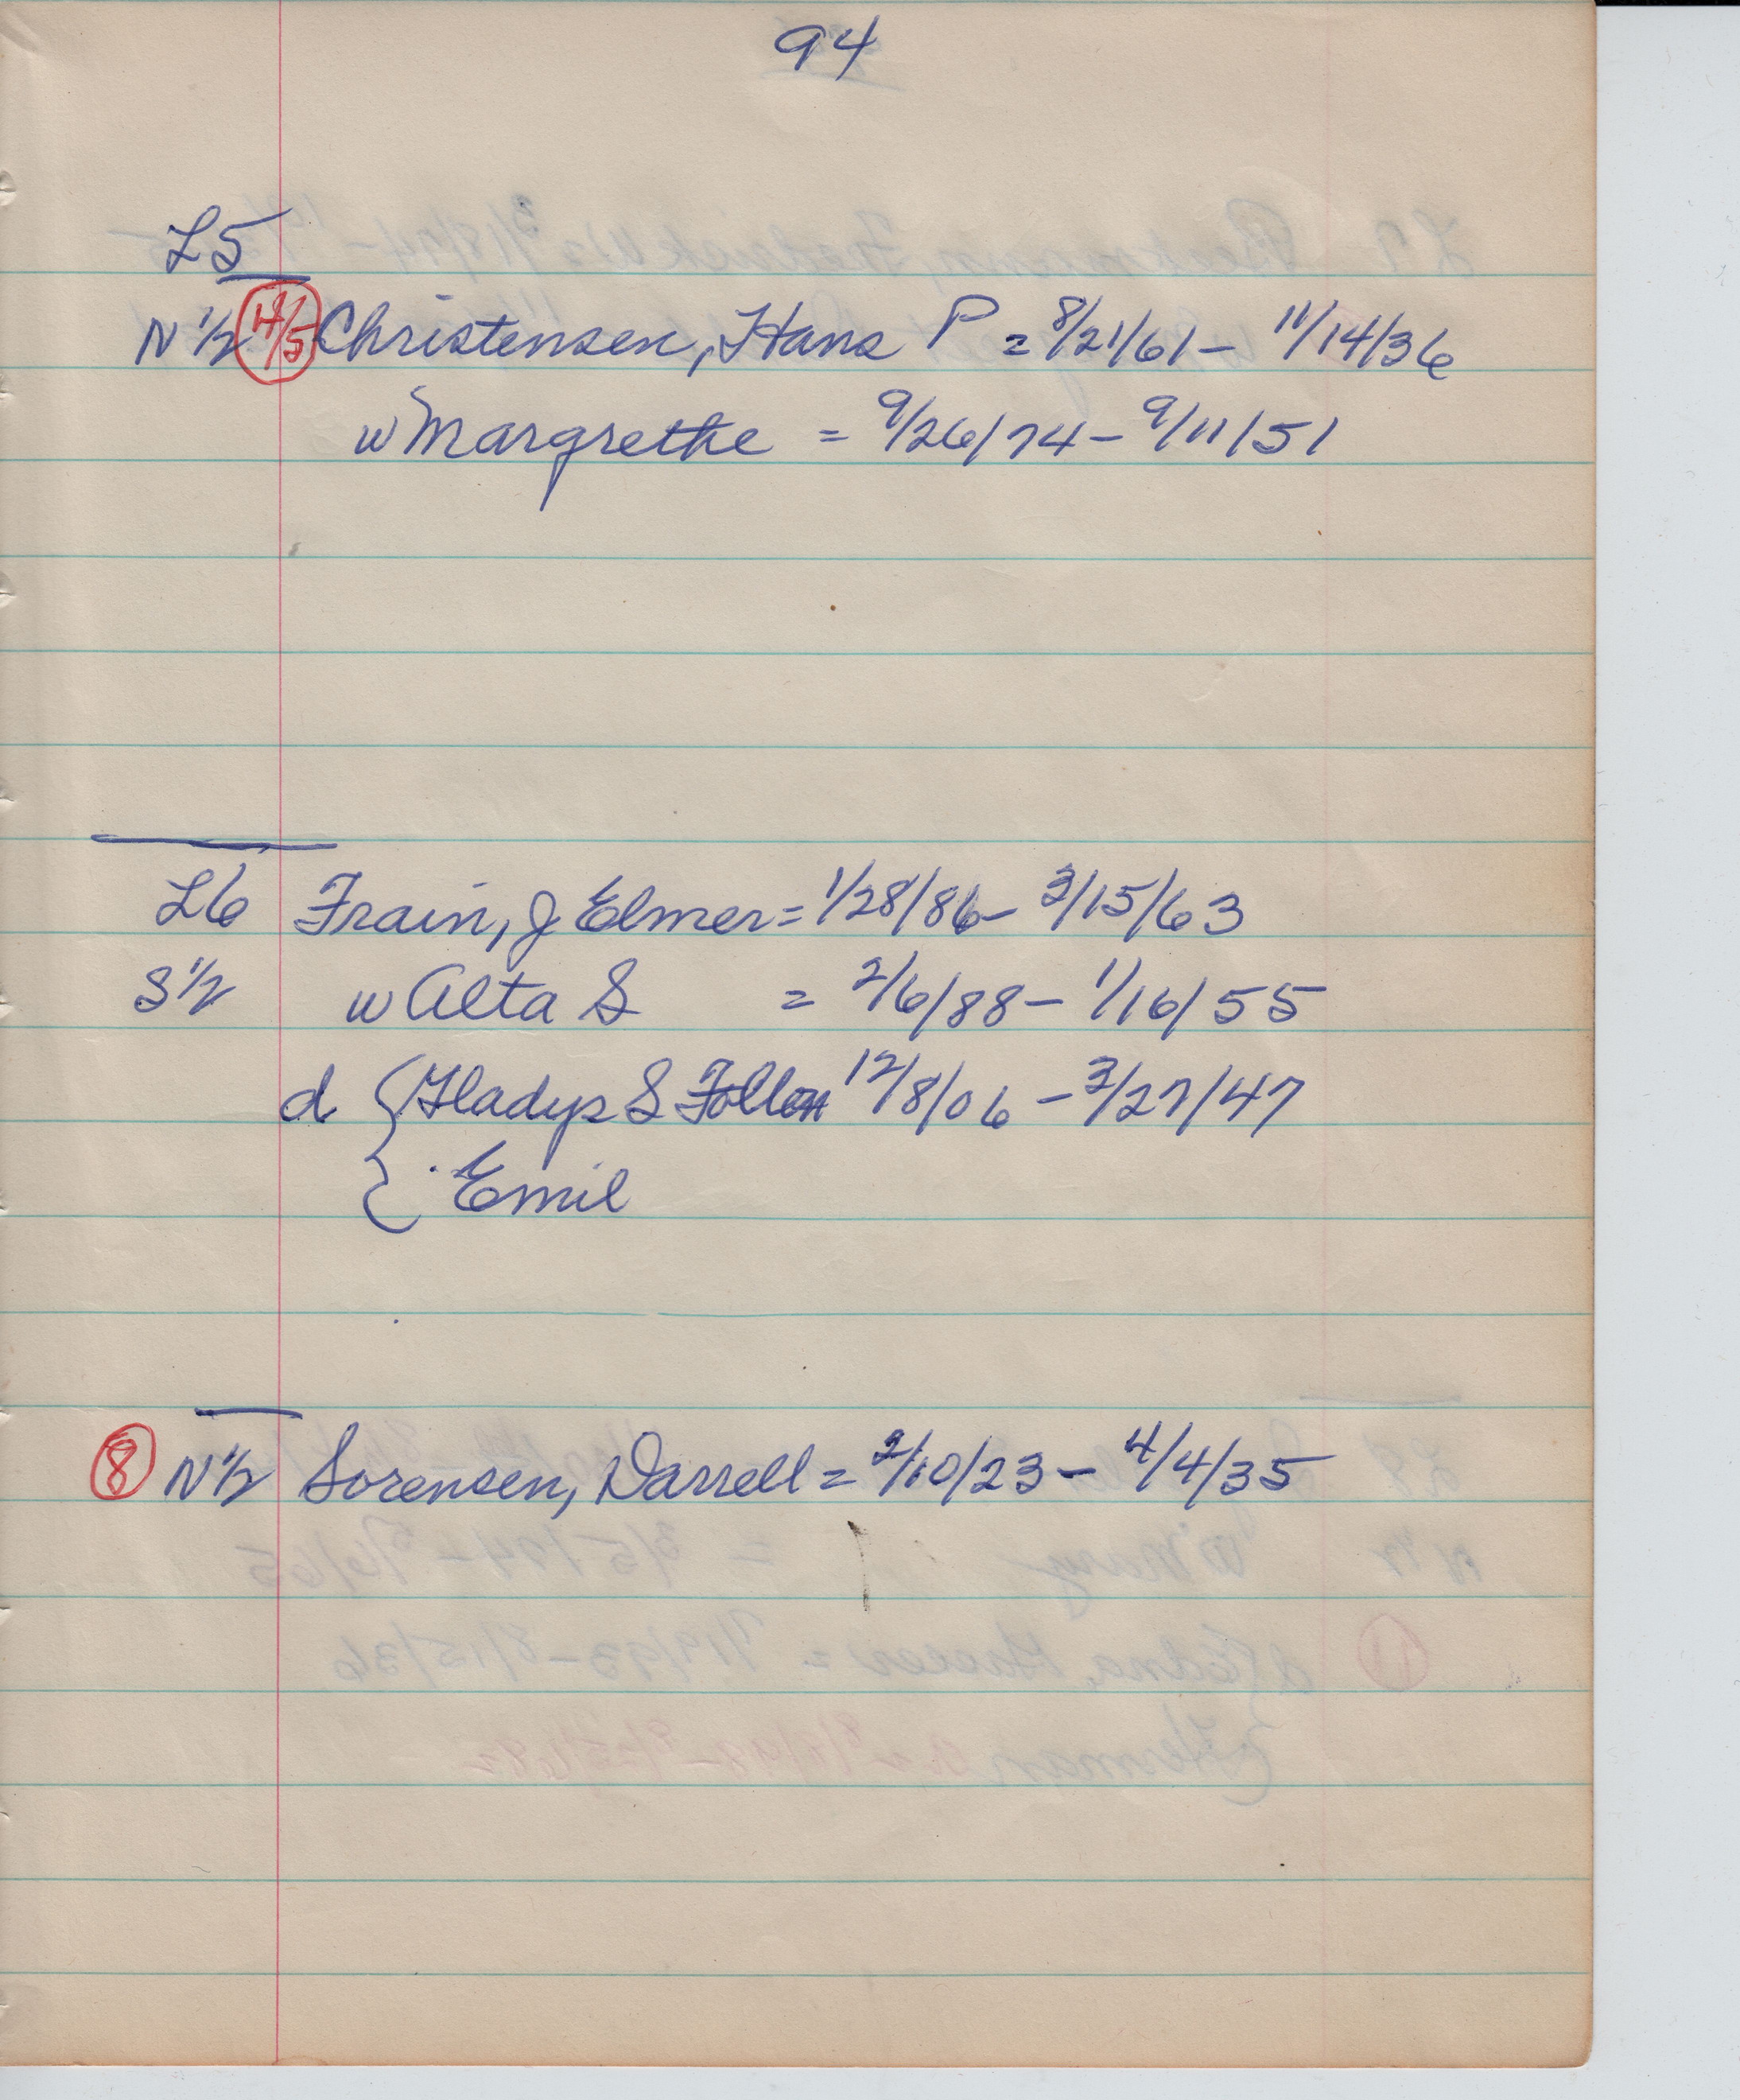 94
L5
N 1/2 4/5 Christensen, Hans P = 8/21/61 - 11/14/36
w Margrethe = 9/26/74 - 9/11/51
L6 Frain, J Elmer = 1/28/86 - 3/15/63
S 1/2 w Alta S = 2/6/88 - 1/16/55
d { Gladys S 12/8/06 - 3/27/47
Emil
8 N 1/2 Sorensen, Darrell = 2/10/23 - 4/4/35